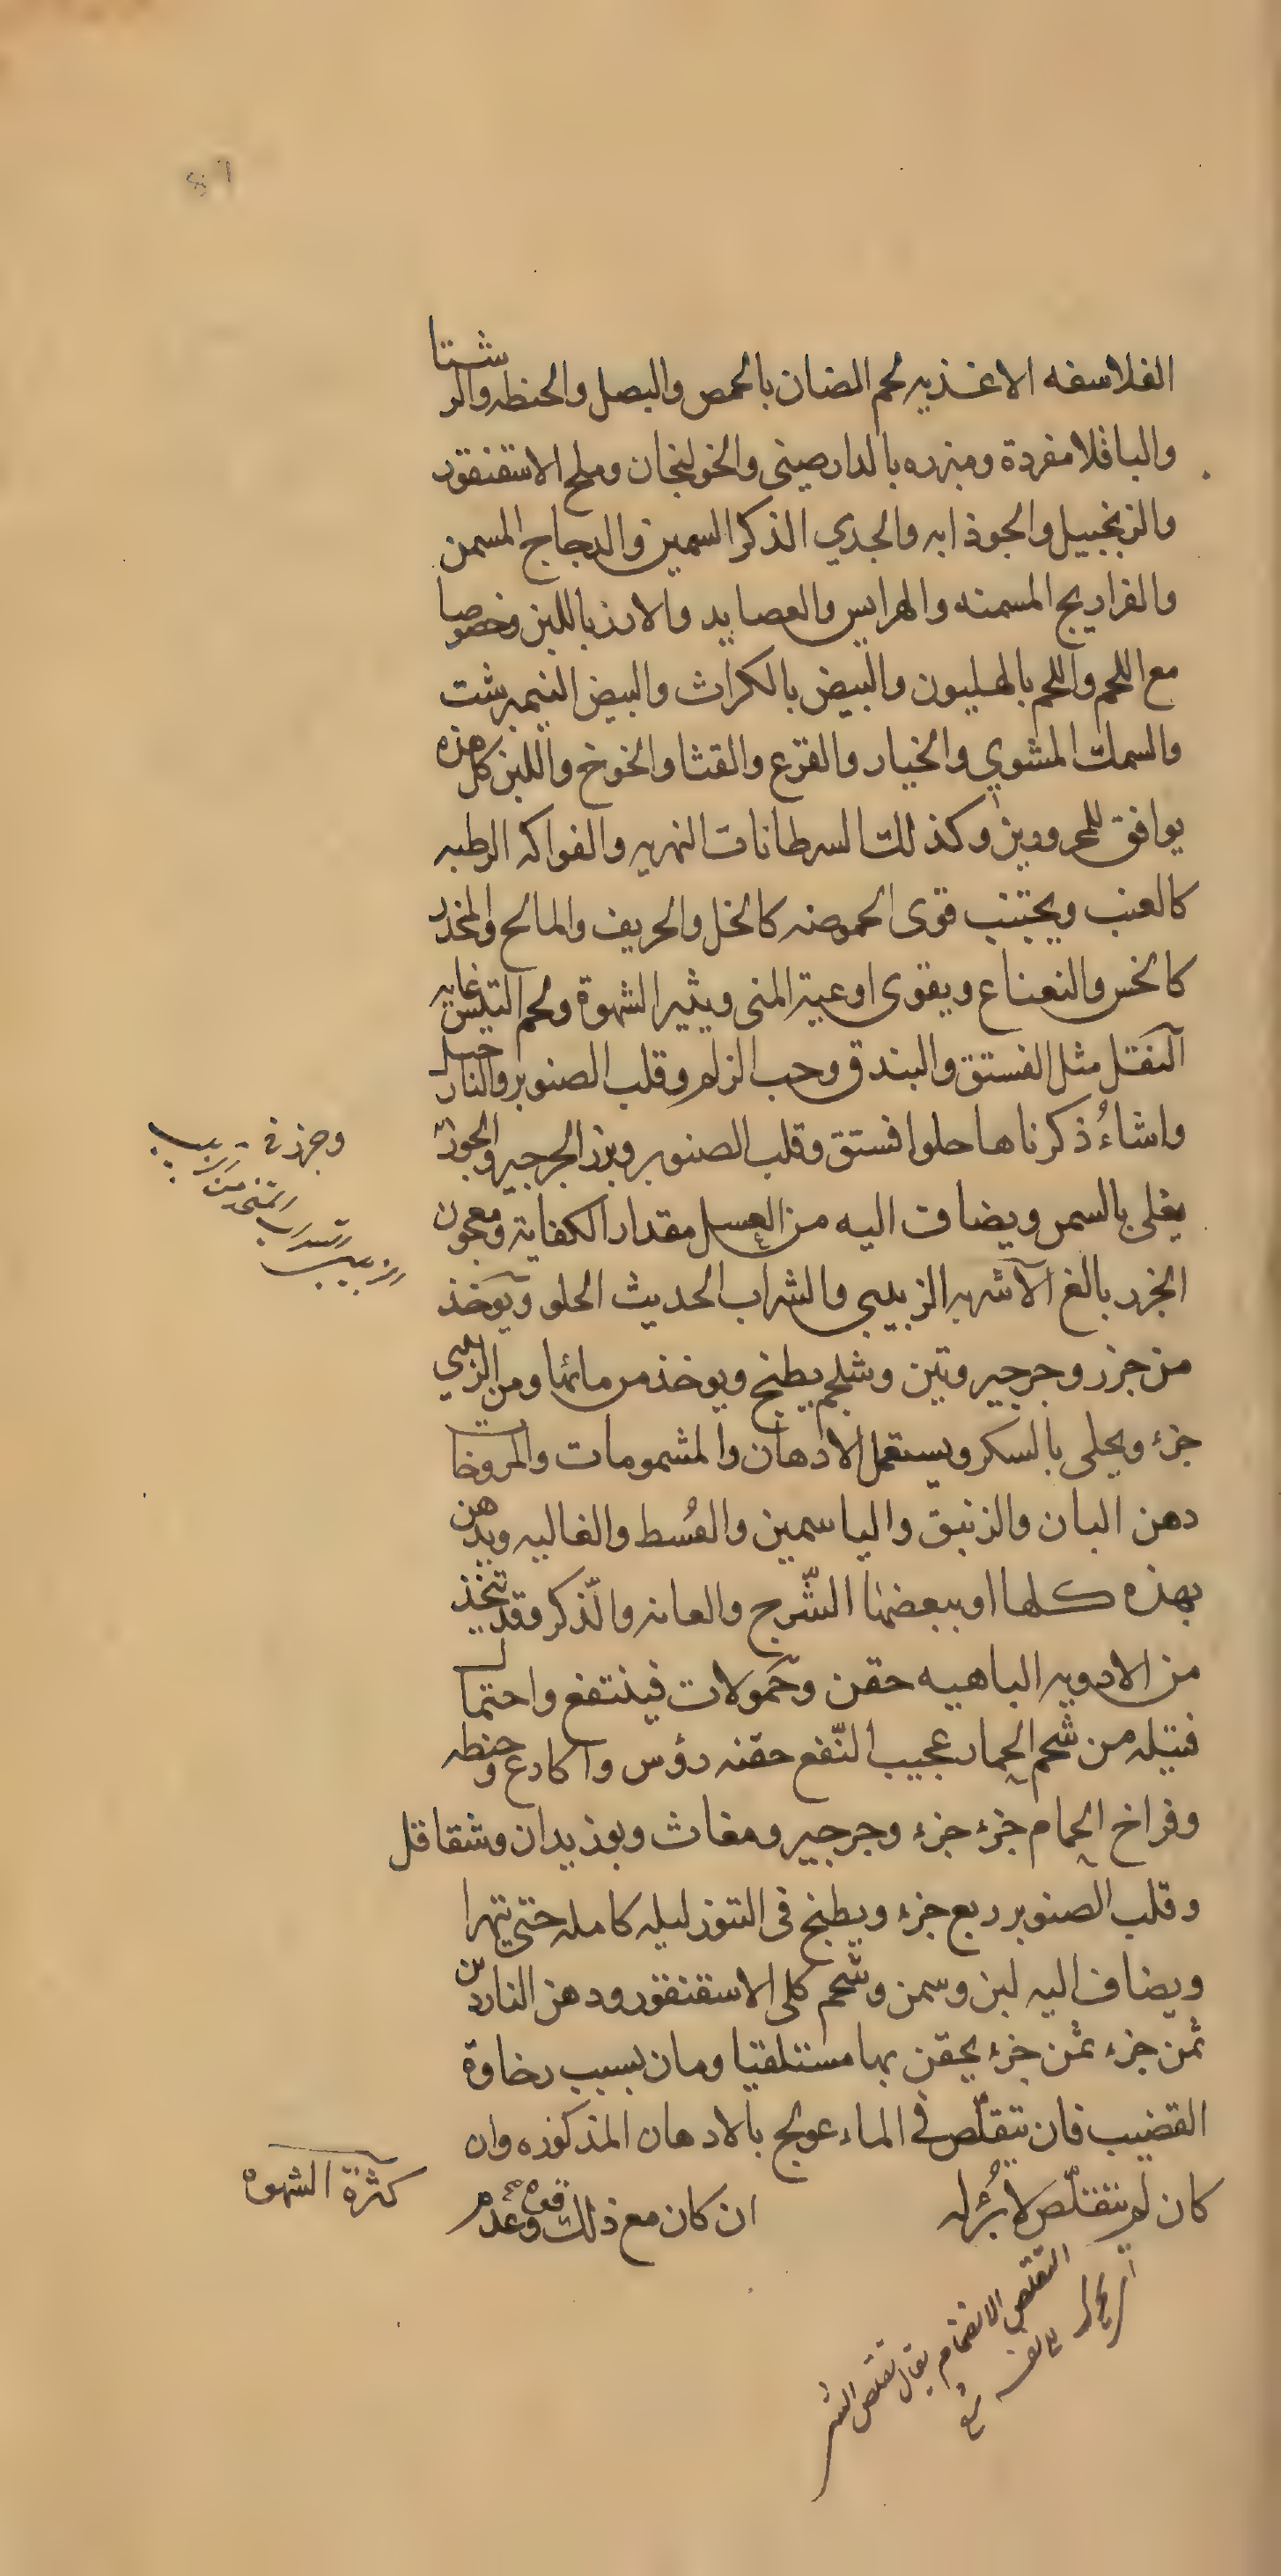 الفلاسفه الاغذيه لحم الضان بالحمص والبصل والحنطه والرشتا
والباقلا مفردة ومبزره بالدارصيني والخولنجان وملح الاسقنقور
والزنجبيل والجوذابه والجدي الذكر السمين والدجاج المسمن
والفراريج المسمنه والهرايس والعصايد والارز باللبن وخصوصا
مع اللحم واللحم بالهليون والبيض بالكراث والبيض النيمبرشت
والسمك المشوي والخيار والقرع والقثا والخوخ واللبن كل هذه
يوافق للمحرورين وكذلك السرطانات النهريه والفواكه الرطبه
كالعنب ويجتنب قوى الحموضه كالخل والحريف والمالح والمخدر
كالخس والنعناع ويقوى اوعية المنى ويثير الشهوة ولحم التيس غايه
النقل مثل الفستق والبندق وحب الزلم وقلب الصنوبر والنارجيل
واشاء ذكرناها حلوا فستق وقلب الصنوبر وبزر الجرجير والجوز
يغلى بالسمن ويضاف اليه من العسل مقدار الكفاية ومعجون
الجزر بالغ الآشربه الزبيبي والشراب الحديث الحلو ويوخذ
من جزر وجرجير وتين وشلجم يطبخ ويوخذ من مائها ومن الزبيبي
جزء ويحلى بالسكر ويستعمل الادهان والمشمومات والمروخات
دهن البان والزنبق والياسمين والقُسط والغاليه ويدهن
بهذه كلها او ببعضها الشّرج والعانه والذّكر وقد تتخذ
من الادويه الباهيه حقن وحَمولات فينتفع واحتمال
فتيله من شحم الحمار عجيب النّفع حقنه رؤس واكارع وحنطه
وفراخ الحمام جزء جزء وجرجير ومغاث وبوزيدان وشقاقل
وقلب الصنوبر ربع جزء ويطبخ فى التنور ليله كامله حتى يتهرا
ويضاف اليه لبن وسمن وشحم كلى الاسقنقور ودهن الناردين
ثمن جزء ثمن جزء يحقن بها مستلقيا ومان بسبب رخاوة
القضيب فان يتقلّص في الماء عولج بالادهان المذكوره وان
كان لم يتقلّص لا بُرْء له ان كان مع ذلك قوه وعدم
كثرة الشهوه
التقلص الانضمام يقال تقلص الشئ